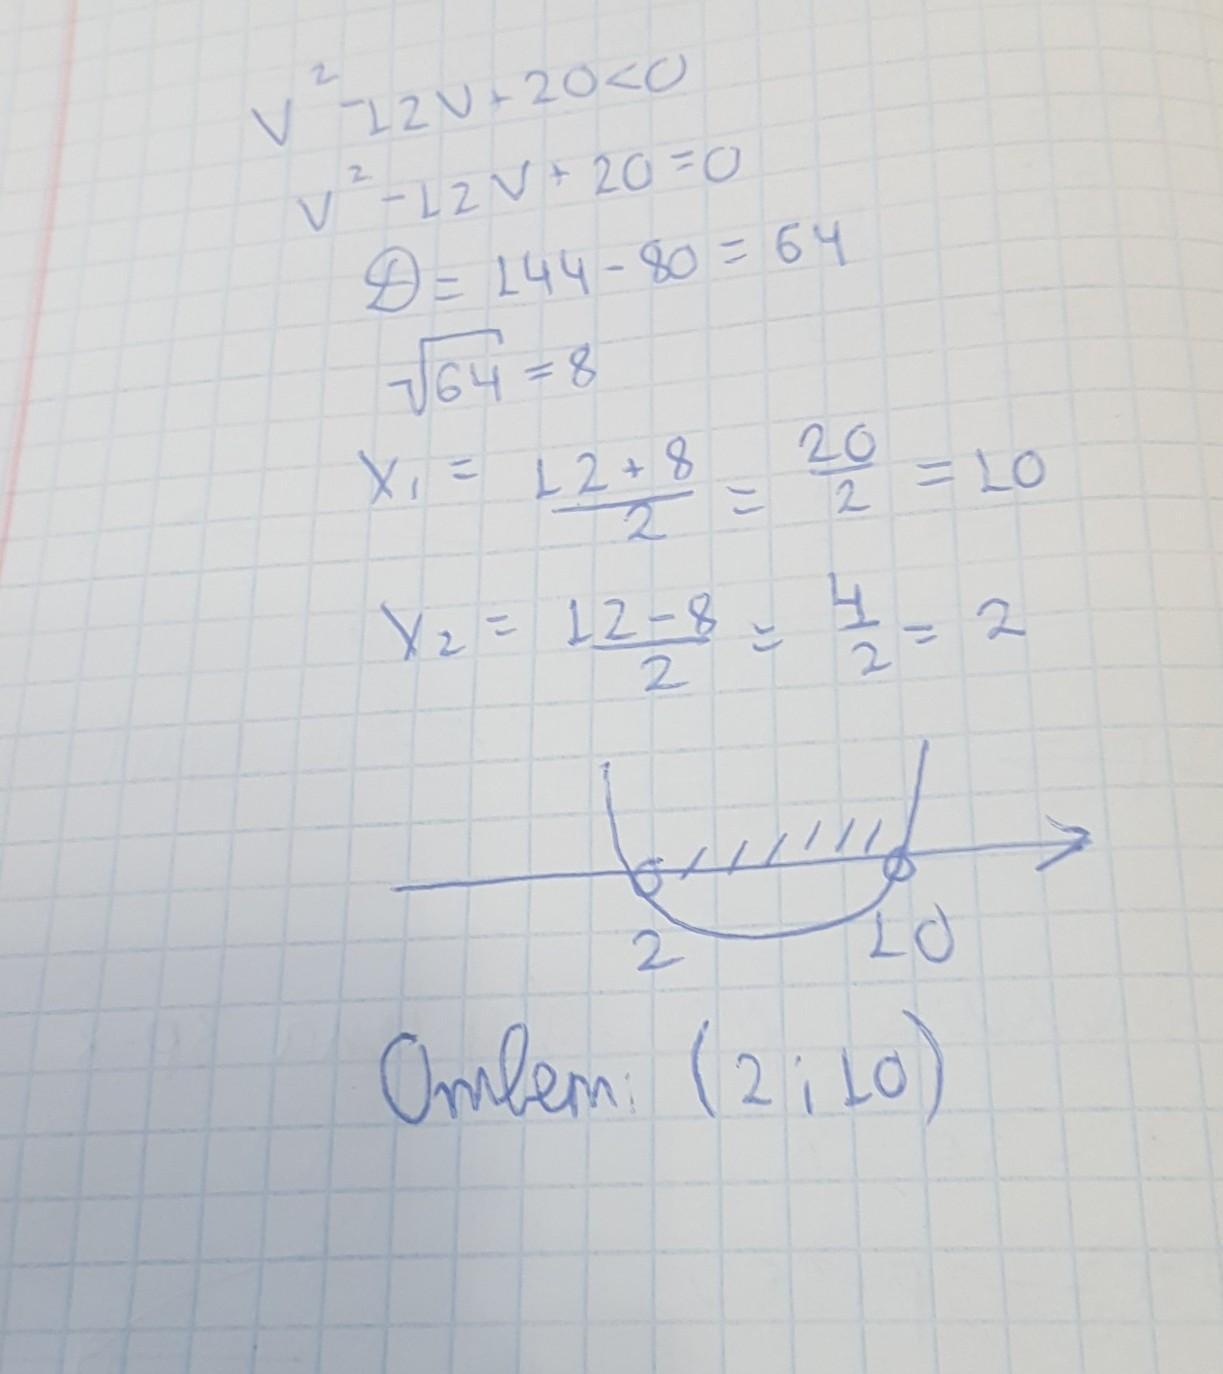 v² - 12v + 20 < 0
v² - 12v + 20 = 0
D = 144 - 80 = 64
√64 = 8
x₁ = (12 + 8)/2 = 20/2 = 10
x₂ = (12 - 8)/2 = 4/2 = 2
2 10
Ответ: (2; 10)